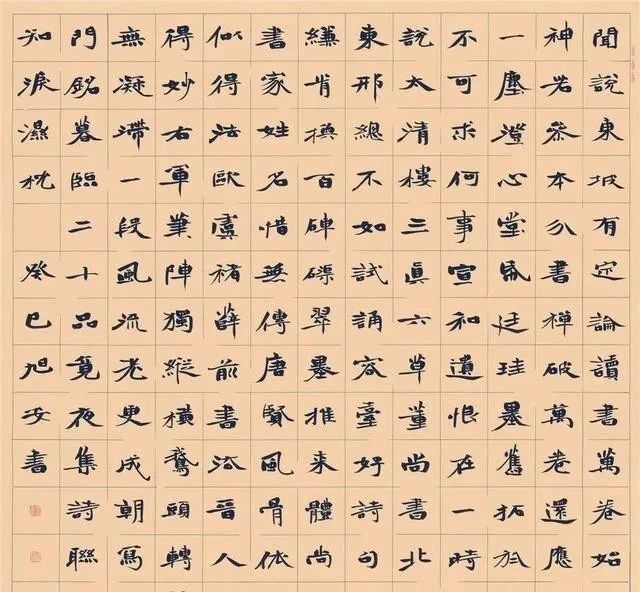 聞說東坡有定論讀書萬卷始
神若參本分書禪破萬卷還應
一塵澄心堂帋廷珪墨舊拓於
不可求何事宣和遺恨在一時
說太清樓三真六草董尚書北
東邢總不如試誦容臺好詩句
縑肯百碑翠墨來體尚
書家姓名惜無傳唐賢風骨依
似得法歐虞褚薛前書沿晉人
得妙右軍筆陣獨縱橫鵝頭轉
無凝滯一段風流老更成朝寫
門銘暮臨二十品竟夜集詩聯
知淚濕枕 癸巳旭書